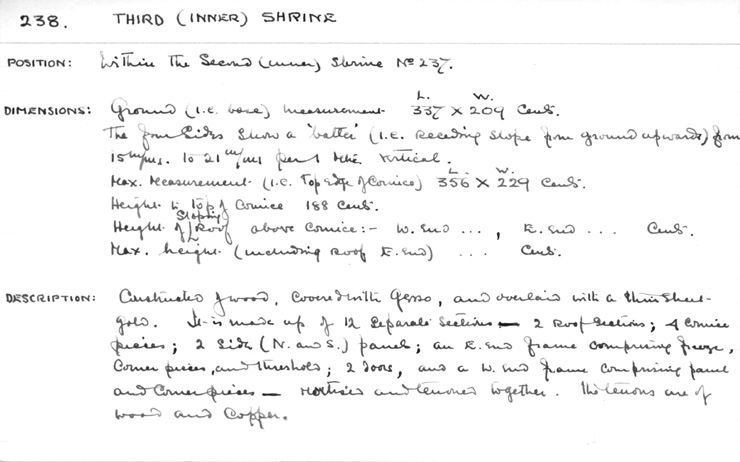 238. THIRD (INNER) SHRINE
POSITION: Within the Second (inner) Shrine Nº 237.
L. W.
DIMENSIONS: Ground (i.e. base) measurement 337 × 209 Cents.
The four Sides show a 'batter' (i.e. receding slope from ground upwards) from
15 m/ms. to 21 m/ms per 1 Metre vertical.
L. W.
Max. Measurement (i.e. Top edge of Cornice) 356 × 229 Cents.
Height to top of Cornice 188 Cents.
Sloping
Height of Roof above Cornice:- W. End ... , E. End ... Cents.
Max. height (including Roof E. End) ... Cents.
DESCRIPTION: Constructed of wood, covered with Gesso, and overlaid with a thin sheet-
gold. It is made up of 12 Separate Sections — 2 Roof Sections; 4 Cornice
pieces; 2 Side (N. and S.) panels; an E. End frame comprising freeze,
Corner pieces, and threshold; 2 doors, and a W. End frame comprising panel
and Corner pieces — morticed and tenoned together. The tenons are of
wood and Copper.